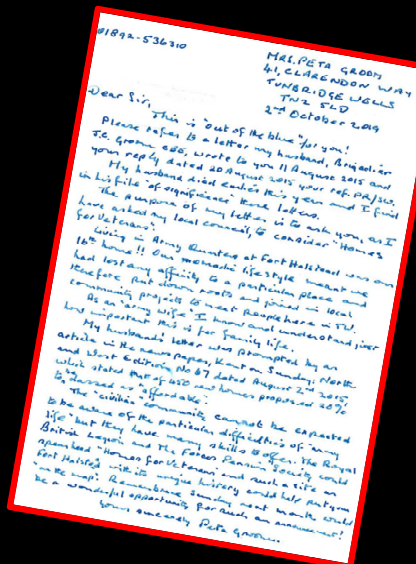 01892-536310
MRS. PETA GROOM
41, CLARENDON WAY
TUNBRIDGE WELLS
TN2 5LD
2nd October 2019
Dear Sir,
This is "out of the blue" for you!
Please refer to a letter my husband, Brigadier
J.C. Groom CBE, wrote to you 11 August 2015 and
your reply dated 20 August 2015 your ref. PR/SW.
My husband died earlier this year and I find
in his file "of significance" these letters.
The purpose of my letter is to ask you, as I
have asked my local council, to consider "Homes
for Veterans".
Living in Army Quarters at Fort Halstead was our
16th home!! Our nomadic lifestyle meant we
had lost any affinity to a particular place and
therefore put down roots and joined in local
community projects to meet people here in T.W.
As an "army wife" I know and understand just
how important this is for family life.
My husband's letter was prompted by an
article in the newspaper, Kent on Sunday, North
and West Edition No 67 dated August 2nd 2015,
which stated that of 450 new homes proposed 40%
to classed as "affordable".
The "civilian" community cannot be expected
to be aware of the particular difficulties of "army
life" but they have many skills to offer. The Royal
British Legion and the Forces Pension Society could
spearhead "Homes for Veterans" and such a site as
Fort Halstead with its unique history could help put you
"on the map". Remembrance Sunday next month would
be a wonderful opportunity for such an announcement!
Yours sincerely Peta Groom.